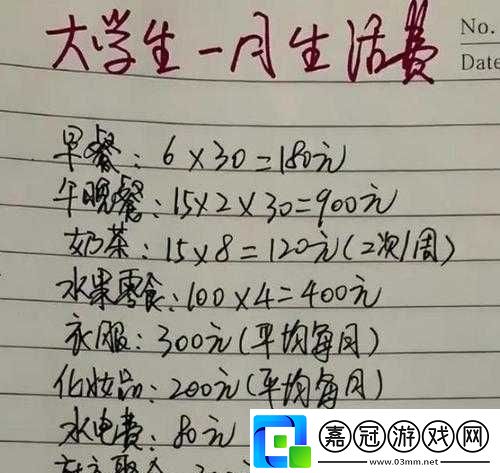 大学生一月生活费
No.
Date
早餐：6×30=180元
午晚餐：15×2×30=900元
奶茶：15×8=120元(2次/周)
水果零食：100×4=400元
衣服：300元(平均每月)
化妆品：200元(平均每月)
水电费：80元
嘉冠游戏网
www.03mm.net